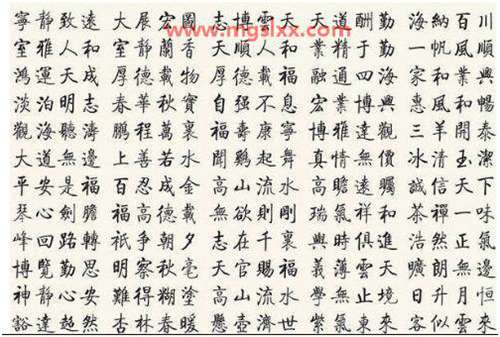 www.mgslxx.com
寧靜致遠 大展宏圖 志博雲天 天道酬勤 海納百川
室雅人和 室靜蘭香 天順人和 業精于勤 一帆風順
鴻運天成 厚德載物 厚德載福 融通四海 家和業興
淡泊明志 春華秋實 自強不息 宏業博興 惠風和暢
觀海聽濤 鵬程萬裏 福壽康寧 博雅達觀 三羊開泰
大道無邊 上善若水 聞鷄起舞 真情無價 冰清玉潔
平安是福 百忍成金 高山流水 高瞻遠矚 誠信天下
琴心劍膽 福高德載 無欲則剛 瑞氣祥和 茶禪一味
峰回路轉 祇爭朝夕 志在千裏 與時俱進 浩然正氣
博覽勤思 明察秋毫 天官賜福 義薄雲天 曠朗無邊
神靜心安 難得糊塗 高山流水 學無止境 日升月恒
豁達超然 杏林春暖 懸壺濟世 紫氣東來 客似雲來